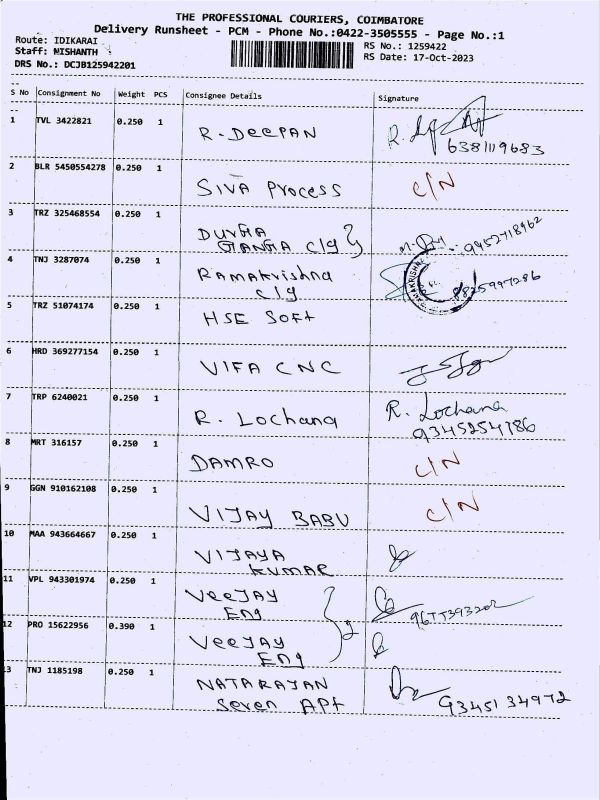 THE PROFESSIONAL COURIERS, COIMBATORE
Delivery Runsheet - PCM - Phone No.:0422-3505555 - Page No.:1
Route: IDIKARAI
RS No.: 1259422
Staff: NISHANTH
RS Date: 17-Oct-2023
DRS No.: DCJB125942201
S No Consignment No Weight PCS Consignee Details Signature
1 TVL 3422821 0.250 1 R. DEEPAN R. 6381119683
2 BLR 5450554278 0.250 1 SIVA Process C/N
3 TRZ 325468554 0.250 1 DURGA
GANGA C/g 9952718962
4 TNJ 3287074 0.250 1 RAMAKrishna
C/g 9825997286
RAMAKRISHNA
5 TRZ 51074174 0.250 1 HSE Soft
6 HRD 369277154 0.250 1 VIFA CNC
7 TRP 6240021 0.250 1 R. Lochana R. Lochana
9345254786
8 MRT 316157 0.250 1 DAMRO C/N
9 GGN 910162108 0.250 1 VIJAY BABU C/N
10 MAA 943664667 0.250 1 VIJAYA
KUMAR
11 VPL 943301974 0.250 1 VeeJAY
Eng
12 PRO 15622956 0.390 1 VeeJAY
Eng
2
13 TNJ 1185198 0.250 1 NATARAJAN
Seven APt 9345134972